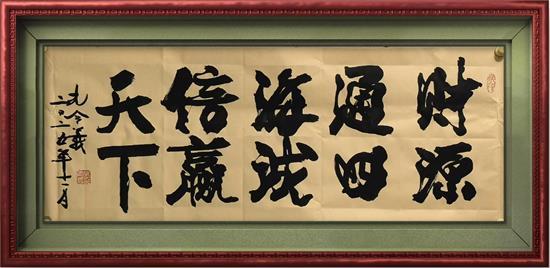 财源
通四
海诚
信赢
天下
二〇一五年十一月